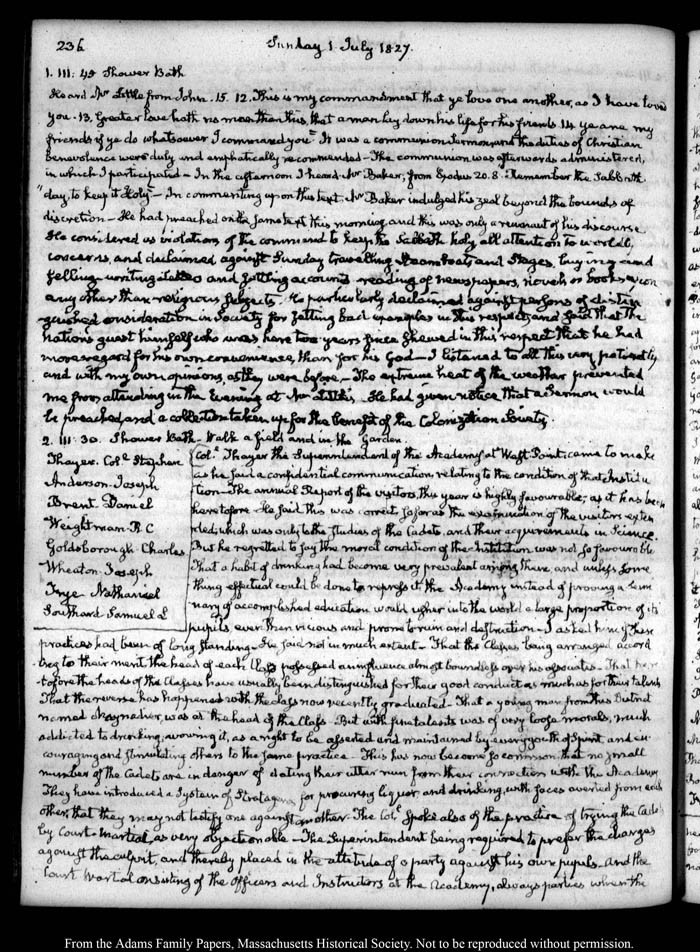 236
Sunday 1 July 1827.
1. III: 45 Shower Bath
Heard Mr Little from John. 15. 12. This is my commandment that ye love one another, as I have loved
you. 13. Greater love hath no man than this, that a man lay down his life for his friends 14 ye are my
friends if ye do whatsoever I command you = It was a communion Sermon, and the duties of Christian
benevolence were duly and emphatically recommended — The communion was afterwards administered,
in which I participated — In the afternoon I heard Mr Baker, from Exodus 20. 8. Remember the Sabbath
"day, to keep it Holy" — In commenting upon this text Mr Baker indulged his zeal beyond the bounds of
discretion — He had preached on the same text this morning, and this was only a remnant of his discourse
He considered as violations of the command to keep the Sabbath holy all attention to worldly
concerns, and declaimed against Sunday travelling Steam boats and Stages, buying and
selling writing letters and settling accounts reading of newspapers, novels or books upon
any other than religious subjects. He particularly declaimed against persons of distin
guished consideration in Society for setting bad examples in this respect; and said that the
nation's guest himself who was here two years since shewed in this respect that he had
more regard for his own convenience, than for his God — I listened to all this very patiently
and with my own opinions, as they were before — The extreme heat of the weather prevented
me from attending in the Evening at Mr Little's. He had given notice that a Sermon would
be preached, and a collection taken up for the benefit of the Colonization Society.
2. III: 30. Shower Bath. Walk a field and in the Garden.
Thayer. Col. Stephen
Anderson. Joseph
Brent. Daniel
Weightman R. C
Goldsborough. Charles
Wheaton. Joseph
Inge. Nathaniel
Southard Samuel L
Col. Thayer the Superintendent of the Academy at West Point, came to make
as he said a confidential communication, relating to the condition of that Institu
tion — The annual Report of the visitors, this year is highly favourable; as it has been
heretofore. He said this was correct so far as the examination of the visitors exten
ded, which was only to the studies of the Cadets, and their acquirements in Science.
But he regretted to say the moral condition of the Institution was not so favourable
That a habit of drinking had become very prevalent among them, and unless some
thing effectual could be done to repress it, the Academy instead of proving a semi
nary of accomplished education, would usher into the world a large proportion of its
pupils, even then vicious and prone to ruin and destruction — I asked him if these
practices had been of long standing — He said not in much extent — That the Classes being arranged accord
ing to their merit the head of each Class possessed an influence almost boundless over his associates — That here
tofore the heads of the Classes have usually been distinguished for their good conduct as much as for their talents
That the reverse has happened with the class now recently graduated. That a young man from this District
named Maynadier, was at the head of the Class — But with fine talents was of very loose morals, much
addicted to drinking, avowing it, as a right to be asserted and maintained by every youth of Spirit, and en
couraging and stimulating others to the same practice — This has now become so common that no small
number of the Cadets are in danger of dating their utter ruin from their connection with the Academy
They have introduced a System of Stratagems for procuring liquor and drinking, with faces averted from each
other, that they may not testify one against another. The Col. spoke also of the practice of trying the Cadets
by Court-Martial, as very objectionable — The Superintendent being required to prefer the charges
against the culprit, and thereby placed in the attitude of a party against his own pupils. And the
Court Martial consisting of the Officers and Instructors at the Academy, always parties when the
From the Adams Family Papers, Massachusetts Historical Society. Not to be reproduced without permission.